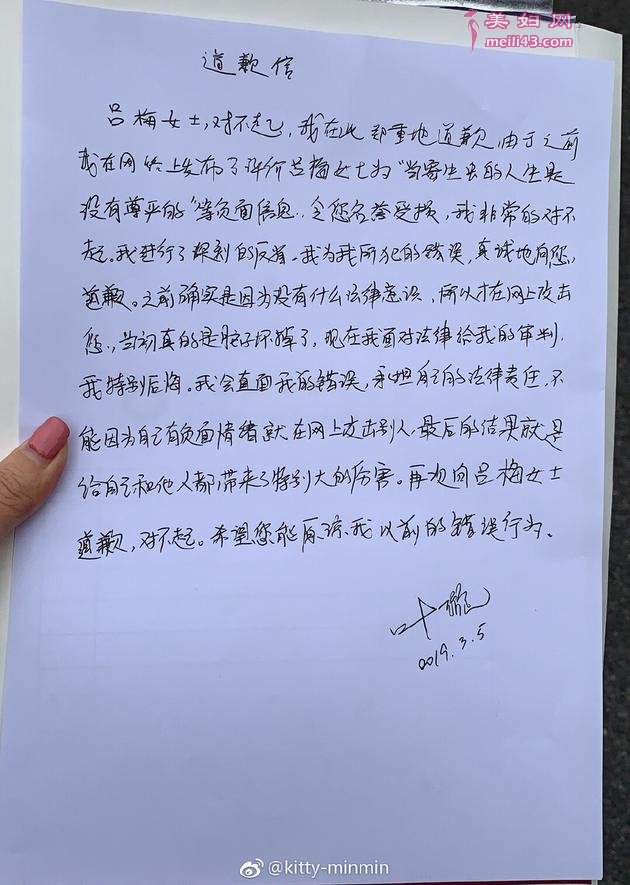 美妇网
meili43.com
道歉信
吕梅女士,对不起,我在此郑重地道歉,由于之前
我在网络上发布了评价吕梅女士为"当寄生虫的人生是
没有尊严的"等负面信息..令您名誉受损,我非常的对不
起。我进行了深刻的反省.我为我所犯的错误,真诚地向您,
道歉。之前确实是因为没有什么法律意识,所以才在网上攻击
您.,当初真的是脑子坏掉了,现在我面对法律给我的审判,
我特别后悔。我会直面我的错误,承担自己的法律责任,不
能因为自己有负面情绪就在网上攻击别人,最后的结果就是
给自己和他人都带来了特别大的伤害。再次向吕梅女士
道歉,对不起。希望您能原谅我以前的错误行为、
叶璇
2019.3.5
@kitty-minmin